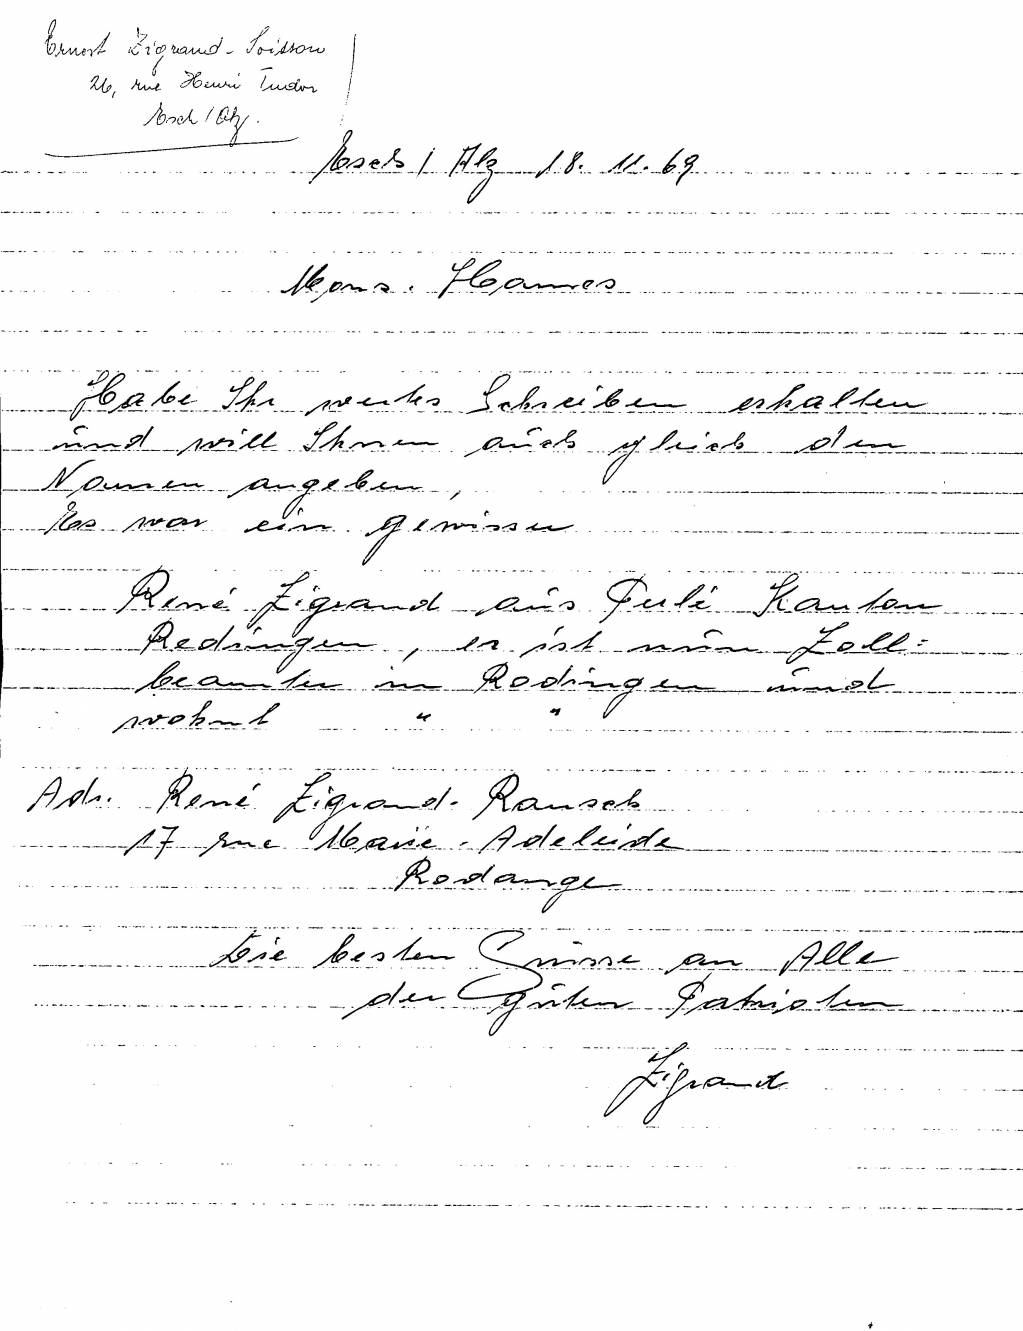 Ernest Zigrand-Soisson
26, rue Henri Tudor
Esch / Alz.
Esch / Alz 18. 11. 69
Mons. Hames
Habe Ihr wertes Schreiben erhalten
und will Ihnen auch gleich den
Namen angeben,
Es war ein gewisser
René Zigrand aus Perlé Kanton
Redingen, er ist nun Zoll=
beamter in Rodingen und
wohnt " "
Adr. René Zigrand-Rausch
17 rue Marie-Adeleide
Rodange
Die besten Grüsse an Alle
der guten Patrioten
Zigrand